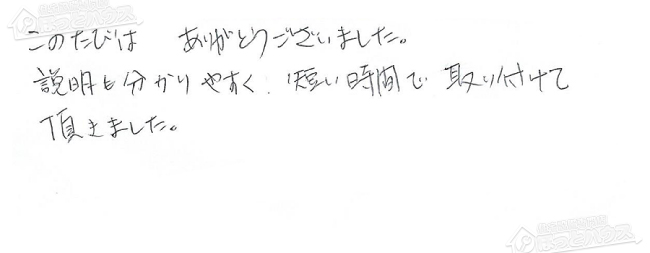 このたびは ありがとうございました。
説明も分かりやすく、短い時間で取り付けて
頂きました。